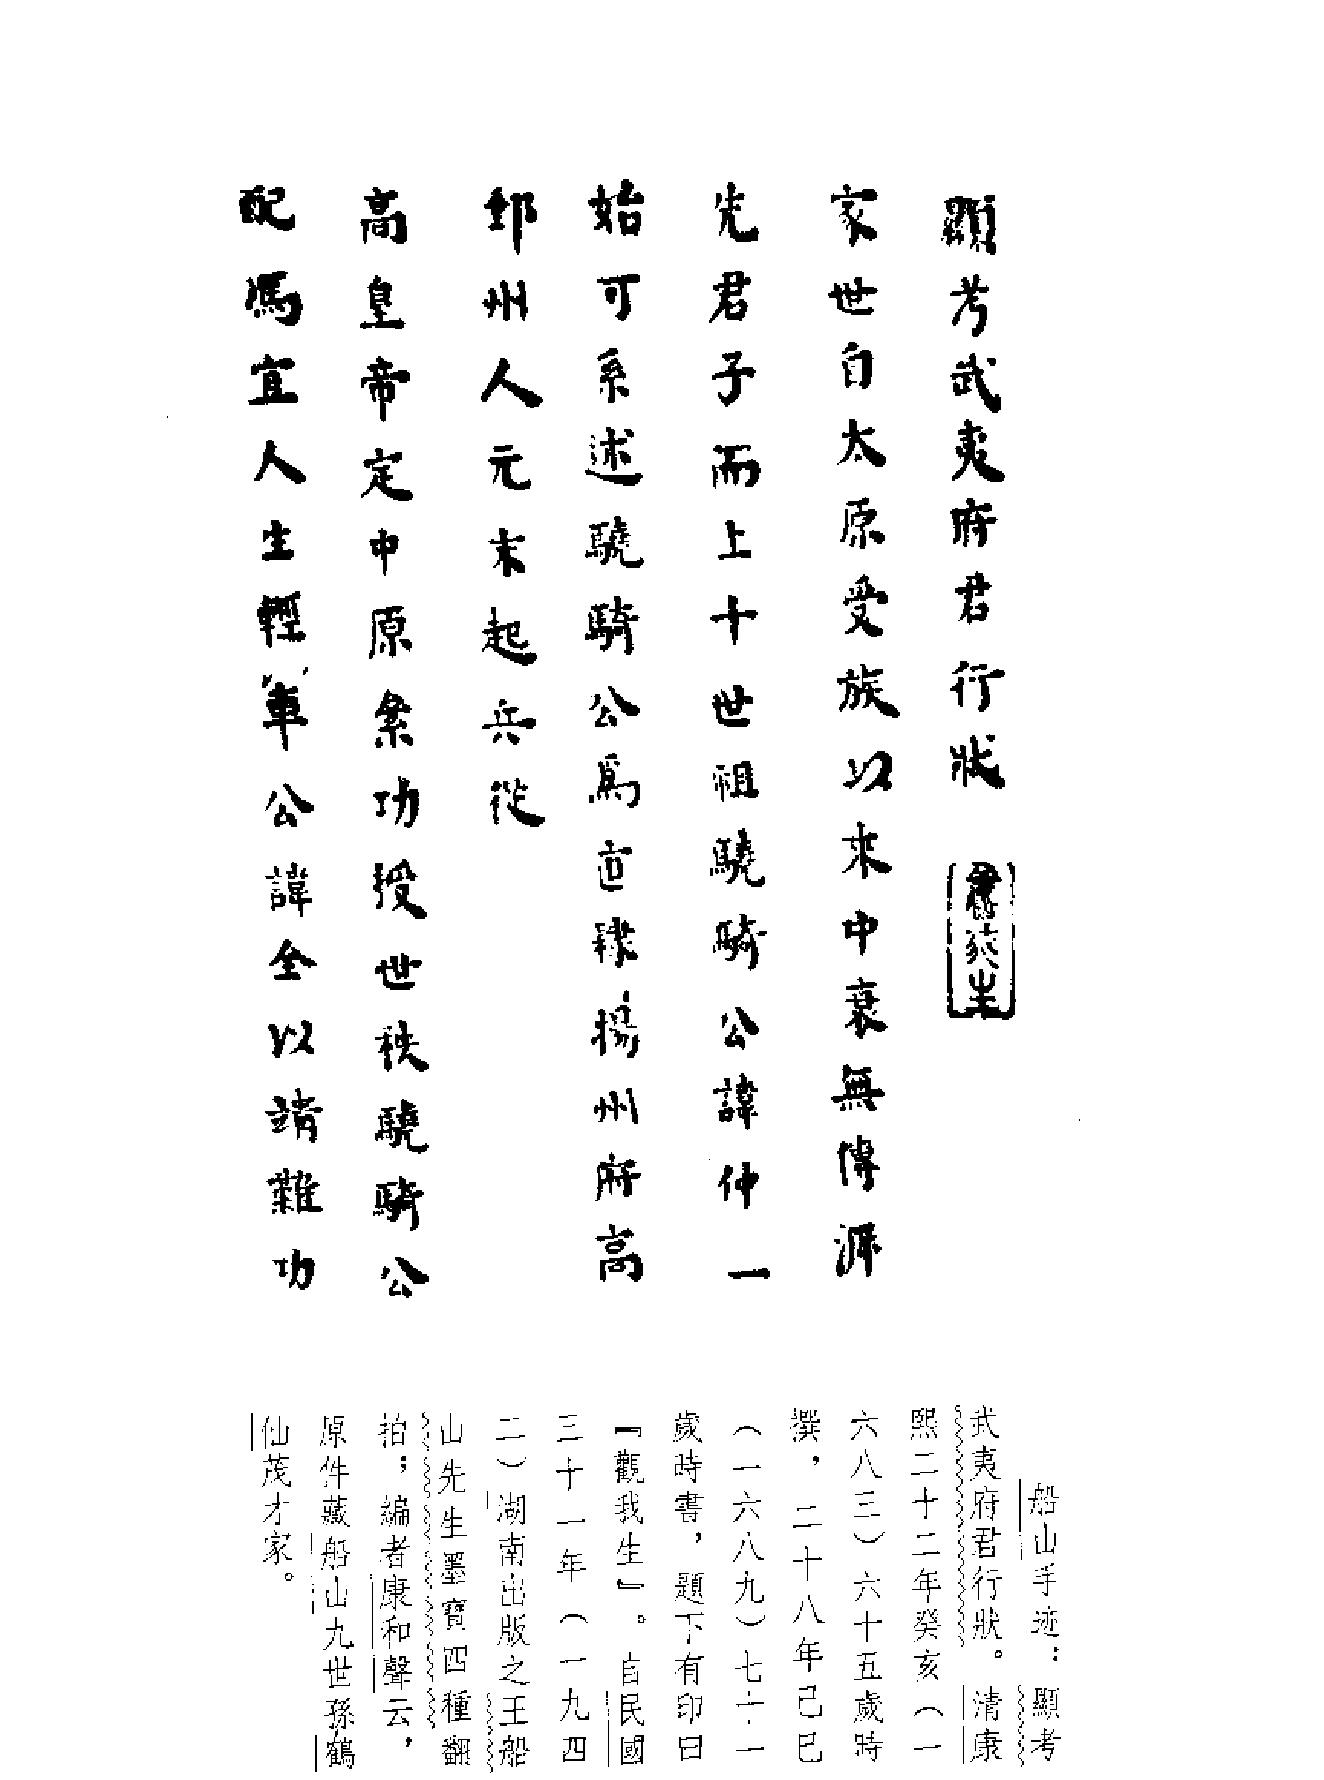 顯考武夷府君行狀
觀我生
家世自太原受族以來中衰無傳派
先君子而上十世祖驍騎公諱仲一
始可系述驍騎公爲直隸揚州府高
郵州人元末起兵從
高皇帝定中原絫功授世秩驍騎公
配馮宜人生輕車公諱全以靖難功
船山手迹：顯考
武夷府君行狀。清康
熙二十二年癸亥（一
六八三）六十五歲時
撰，二十八年己巳
（一六八九）七十一
歲時書，題下有印曰
『觀我生』。自民國
三十一年（一九四
二）湖南出版之王船
山先生墨寶四種翻
拍；編者康和聲云，
原件藏船山九世孫鶴
仙茂才家。